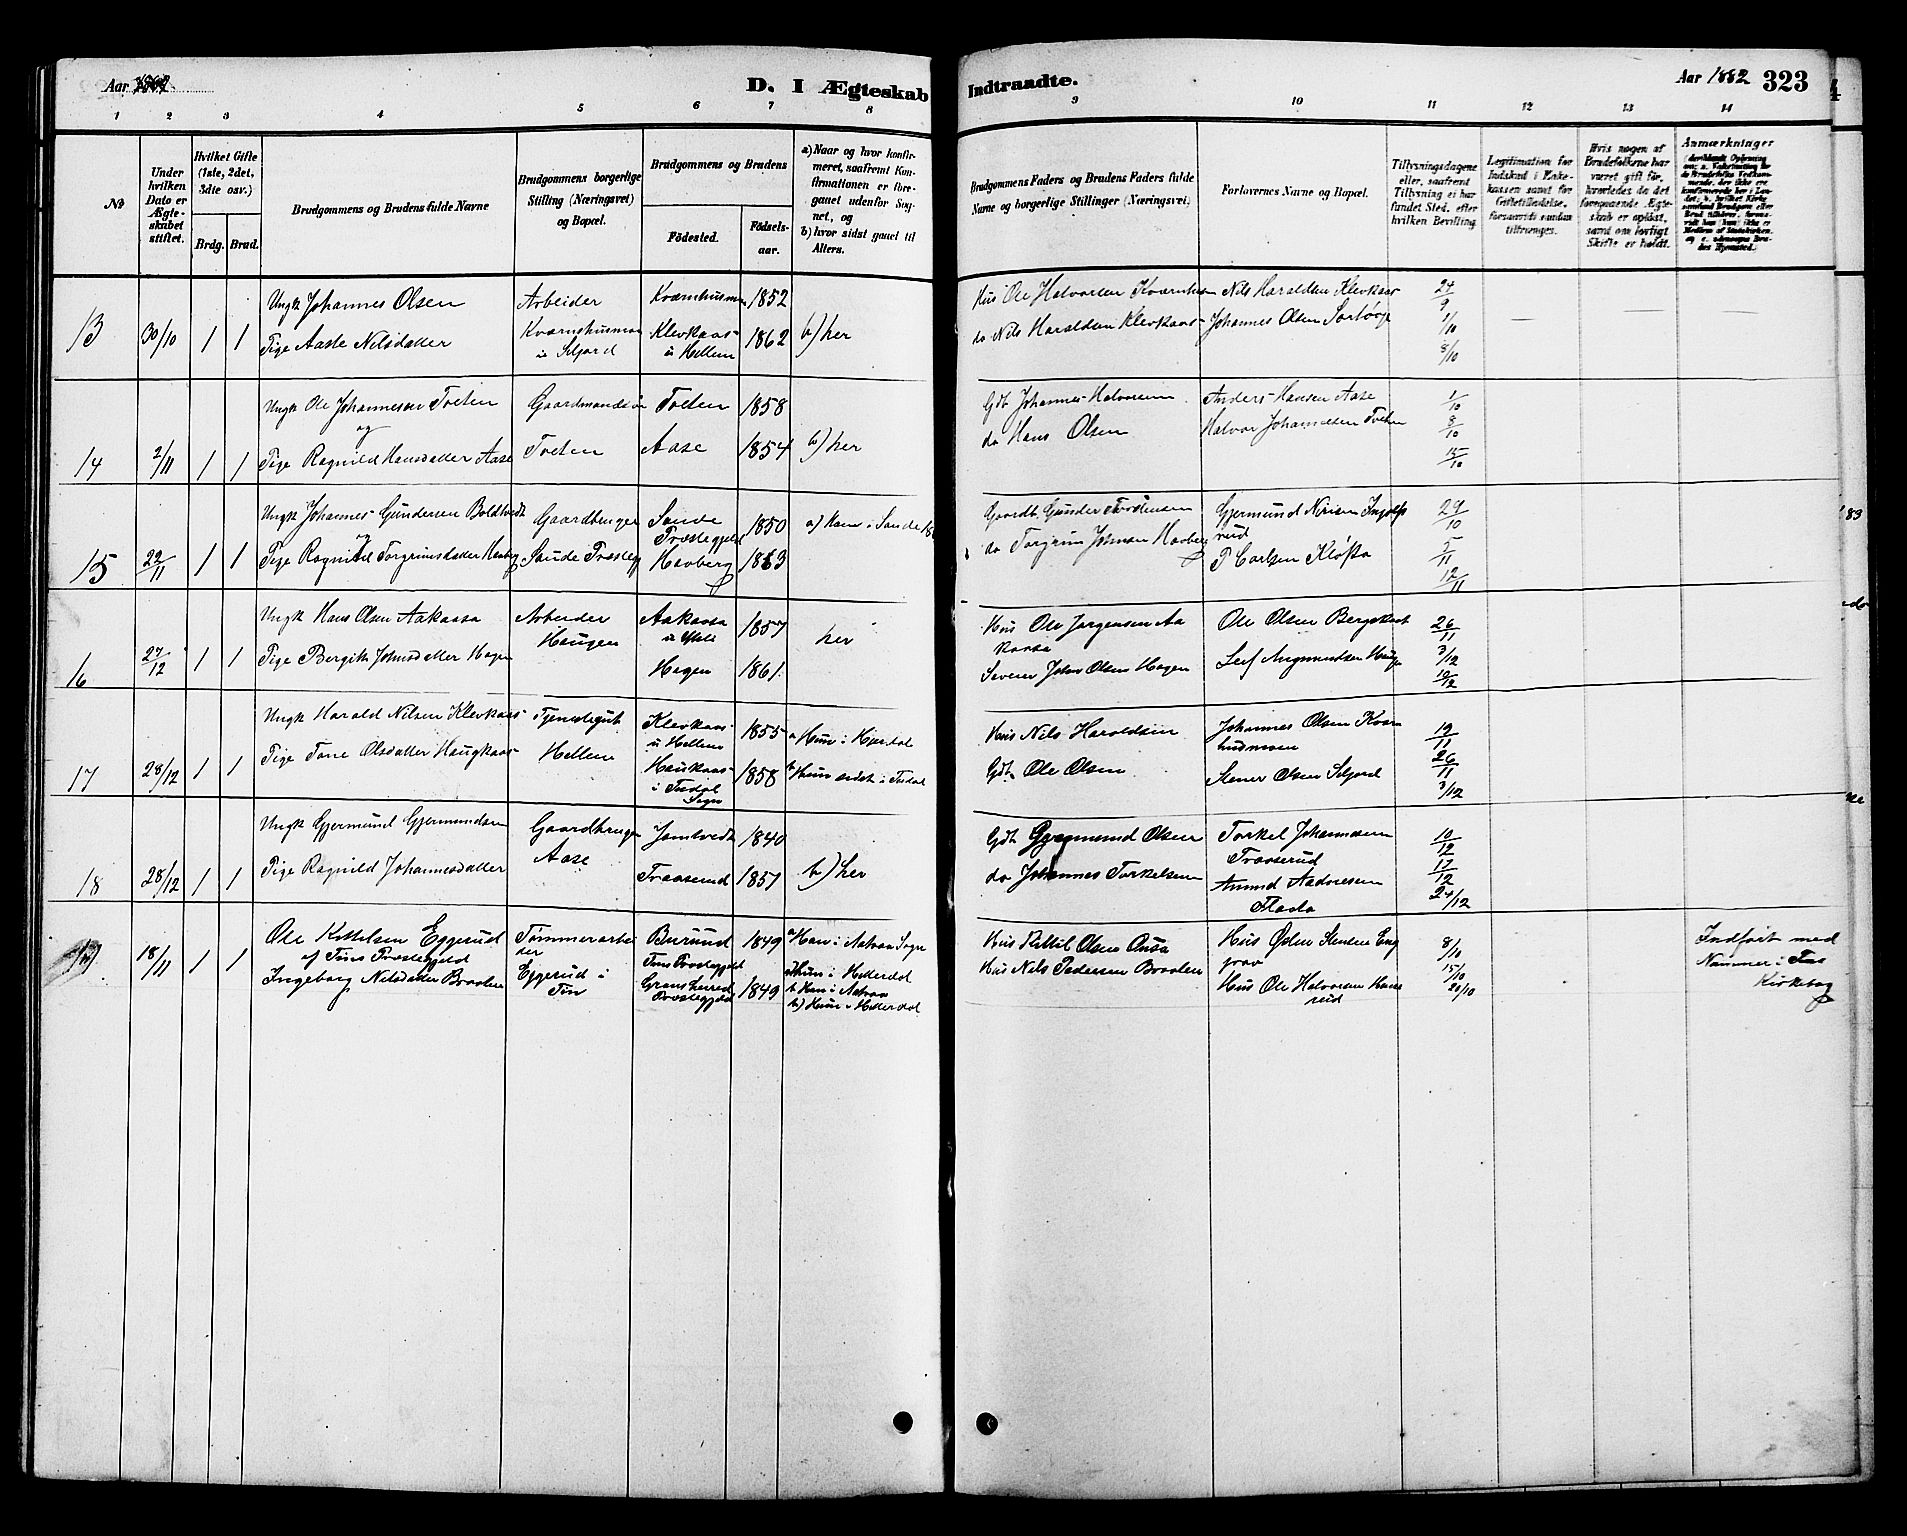 Aar
D. I Ægteskab
Indtraadte.
Aar 1882 323
1 2 3 4 5 6 7 8 9 10 11 12 13 14
No
Under hvilken Dato er Ægteskabet stiftet.
Hvilket Gifte (1ste, 2det, 3die osv.)
Brdg. Brud.
Brudgommens og Brudens fulde Navne
Brudgommens borgerlige Stilling (Næringsvei) og Bopæl.
Brudgommens og Brudens
Födested. Födsels-aar.
a) Naar og hvor konfirmeret, saafremt Konfirmationen er foregaaet udenfor Sognet, og
b) hvor sidst gaaet til Alters.
Brudgommens Faders og Brudens Faders fulde Navne og borgerlige Stillinger (Næringsvei.
Forlovernes Navne og Bopæl.
Tillysningsdagene eller, saafremt Tillysning ei har fundet Sted, efter hvilken Bevilling
Legitimation for Indskud i Enkekassen samt for Giftetilladelse, forsaavidt saadan tiltrænges.
Hvis nogen af Brudefolkene har været gift för, hvorledes da det foregaaende Ægteskab er oplöst, samt om lovligt Skifte er holdt.
Anmærkninger
13 30/10 1 1
Ungk Johannes Olsen
Pige Aaste Nilsdatter
Arbeider
Kværnhusmoen
u Seljord
Kværnhusmoen 1852
Klevkaas
u Hellem 1862
b) her
Hus Ole Halvorsen Kværnhusm
do Nils Haraldsen Klevkaas
Nils Haraldsen Klevkaas
Johannes Olsen
24/9
1/10
8/10
14 2/11 1 1
Ungk Ole Johannesen Tveten
og
Pige Ragnild Hansdatter Aase
Gaardmandsön
Tveten
Tveten 1858
Aase 1854
b) her
Gdb Johannes Halvorsen
do Hans Olsen
Anders Hansen Aase
Halvor Johannesen Tveten
1/10
8/10
15/10
15 22/11 1 1
Ungk Johannes Gundersen Boldtvedt
Pige Ragnild Torgrimsdatter Havberg
Gaardbruger
Sande Præsteg
Sande
Præstegjeld 1850
Havberg 1863
a) Ham i Sande
Gaardb Gunder Torstensen
do Torgrim Johnsen Havberg
Gjermund Nirisen Ingolfs
rud
P Carlsen Kløfta
29/10
5/11
12/11
16 27/12 1 1
Ungk Hans Olsen Aakaasa
Pige Bergith Johnsdatter Hagen
Arbeider
Haugen
Aakaasa 1857
Hagen 1861
her
Hus Ole Jørgensen Aa
kaasa
John Olsen Hagen
Ole Olsen
Leif
26/11
3/12
10/12
17 28/12 1 1
Ungk Harald Nilsen Klevkaas
Pige Tone Olsdatter Haugkaas
Tjenestegut
Hellem
Klevkaas
u Hellem 1855
Haukaas
i Tudal
Sogn 1858
a Hun i Hjærdal
b Hun sidst i Tudal
Hus Nils Haroldsen
Gdb Ole Olsen
Johannes Olsen Kværn
husmoen
Stener Olsen Seljord
19/11
26/11
3/12
18 28/12 1 1
Ungk Gjermund Gjermundsen
Pige Ragnild Johannesdatter
Gaardbruger
Aase
Jamtvedt 1840
Traaserud 1857
b) her
Gdb Gjermund Olsen
do Johannes Torkelsen
Torkel Johannesen
Traaserud
Amund Aadnesen
10/12
17/12
24/12
18/11 1 1
Ole Kittelsen Eggerud
af Tins Præstegjeld
Ingeborg Nilsdatter Braaten
Tømmerarbei
der
Eggerud i
Tin
Burund 1849
Tins Præstegjeld
Grans
Præstegjeld 1849
a Han i Aatraa Sogn
Hun i Hitterdal
b Han i Aatraa
b) Hun i Hitterdal
Hus Kittil Olsen
Hus Nils Pedersen Braaten
Hus Østen Stensen Eng
grav
Hus Ole Halvorsen
rud
8/10
15/10
20/10
Indført med
Nummer i Tins
Kirkebog